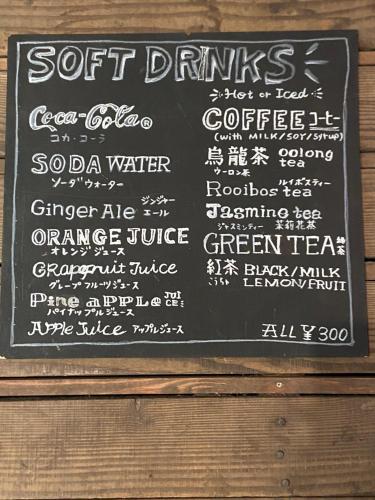 SOFT DRINKS
Coca-Cola®
コカ・コーラ
SODA WATER
ソーダウォーター
Ginger Ale ジンジャーエール
ORANGE JUICE
オレンジジュース
Grapefruit Juice
グレープフルーツジュース
Pine apple JUICE
パイナップルジュース
Apple Juice アップルジュース
Hot or Iced
COFFEE コーヒー
(with MILK/SOY/Syrup)
烏龍茶 oolong tea
ウーロン茶
ルイボスティー
Rooibos tea
Jasmine tea
ジャスミンティー 茉莉花茶
GREEN TEA 緑茶
紅茶 BLACK/MILK
LEMON/FRUIT
ALL ¥300